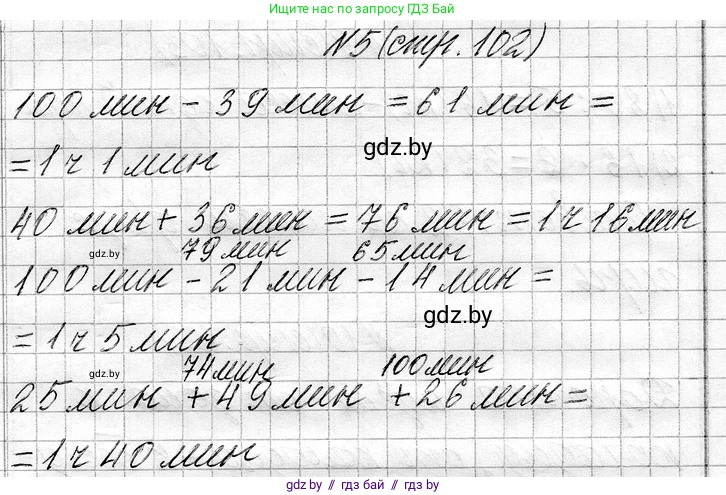 Ищите нас по запросу ГДЗ Бай
№5 (стр. 102)
100 мин - 39 мин = 61 мин =
gdz.by
= 1 ч 1 мин
40 мин + 36 мин = 76 мин = 1 ч 16 мин
79 мин 65 мин
gdz.by
100 мин - 21 мин - 14 мин =
gdz.by
= 1 ч 5 мин
74 мин 100 мин
gdz.by
25 мин + 49 мин + 26 мин =
= 1 ч 40 мин
gdz.by // гдз бай // gdz.by // гдз бай // gdz.by